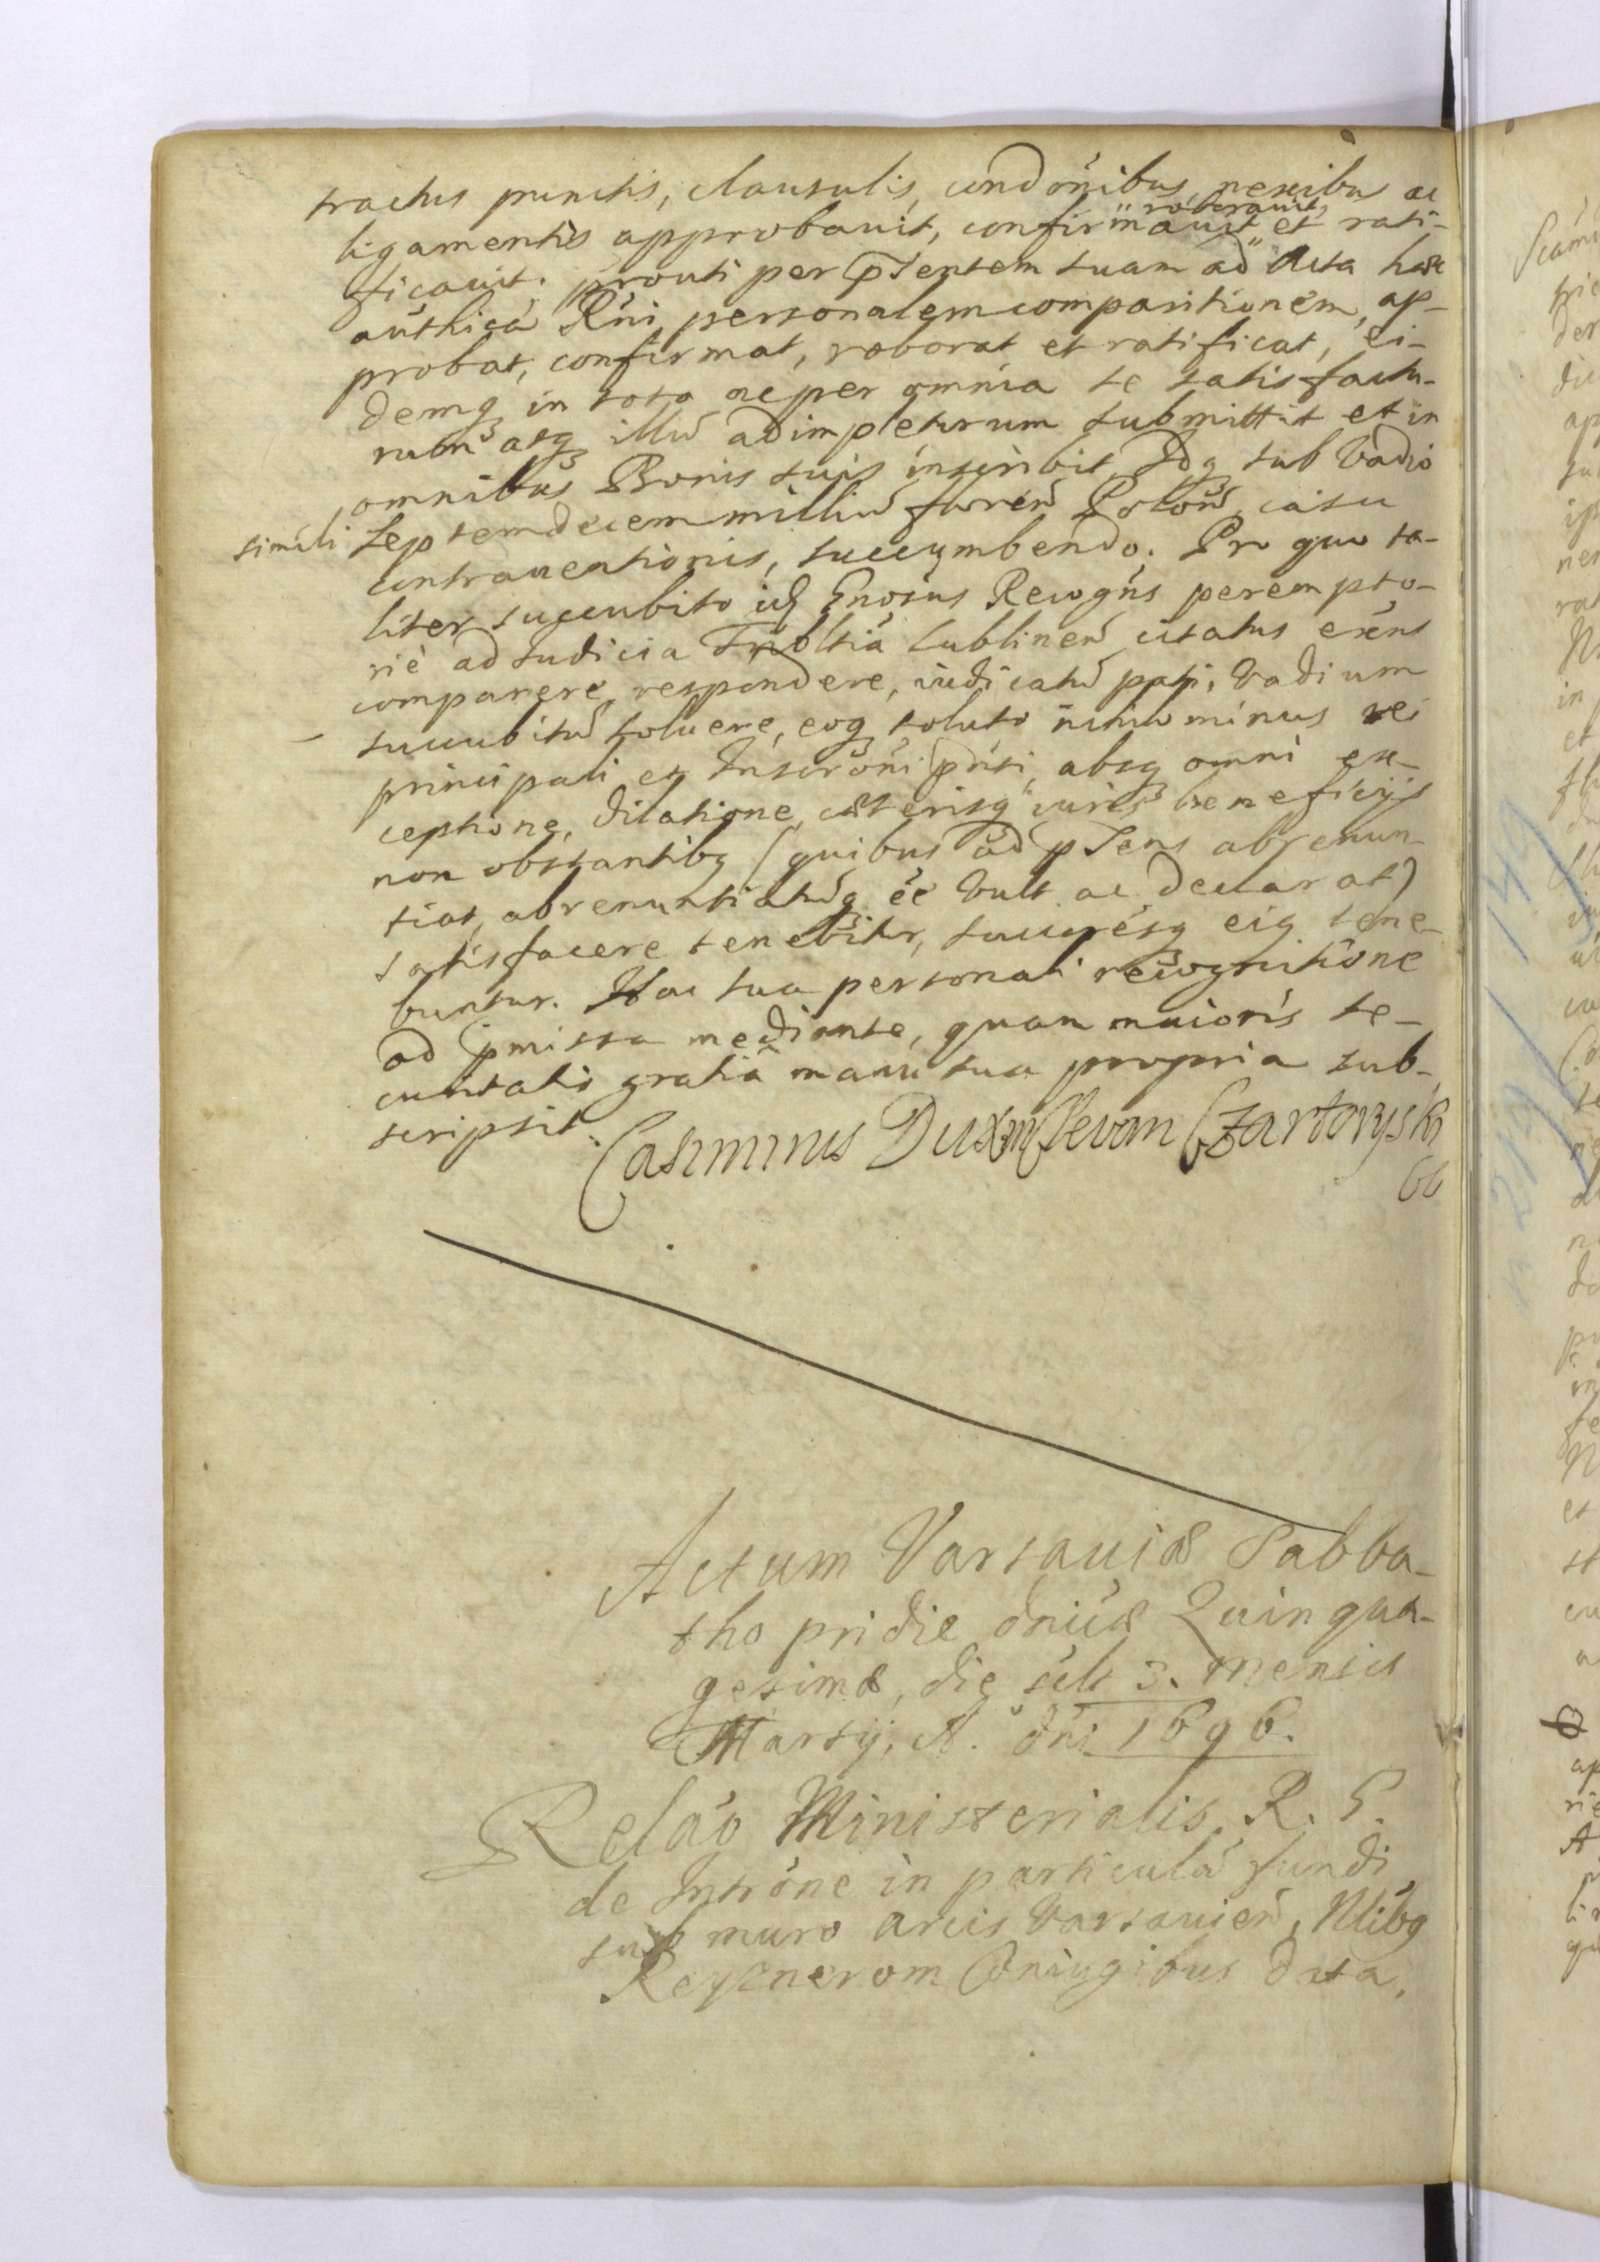 tractus punctis, clausulis, condõnibus, nexibus ac
ligamentis approbauit, confirmauit roborauit et rati-
ficauit. prouti per pñsentem suam ad Acta hæc
authica Rñi personalem comparitionem, ap-
probat, confirmat, roborat et ratificat, ei-
demq in toto ac per omnia se satisfactu-
rum atq illud adimpleturum submittit et in
omnibus Bonis suis inscribit, Idq sub Vadio
simili Septemdecem milliũ floren̄ Polon̄, casu
contrauentionis, succumbendo. Pro quo ta-
liter succubito id Gnosus Recogñs perempto-
rie ad Iudicia Tribltia Lublinen̄ citatus exens
comparere, respondere, iudicatũ pati, Vadium
succubitũ soluere, eoq soluto nihilominus rei
principali et Inscrõni pñti, absq omni ex-
ceptione, dilatione, cæterisq iuris beneficijs
non obstantibq (quibus ad pñsens abrenun-
tiat, abrenuntiatũq ẽe Vult ac declarat)
satisfacere tenebitur, succrẽsq eiq tene-
buntur. Hac sua personali recognitione
ad pmissa mediante, quam maioris se-
curitatis gratia manu sua propria sub-
scripsit.
Casimirus Dux in Klevan Czartoryski
Actum Varsauiæ Sabba-
tho pridie dñicæ Quinqua-
gesimæ, die sclt 3. Mensis
Martij, A. dñi 1696.
Relão Ministerialis R. G.
de Intrõne in particulã fundi
sub muro arcis Varsauien̄, Nlibq
Reyznerom Coniugibus data.